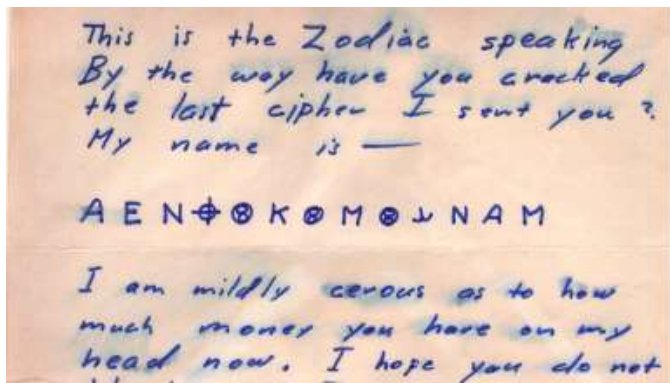 This is the Zodiac speaking
By the way have you cracked
the last cipher I sent you?
My name is —
A E N ⌖ ⊗ K ⊗ M ⊗ ⅄ N A M
I am mildly cerous as to how
much money you have on my
head now. I hope you do not